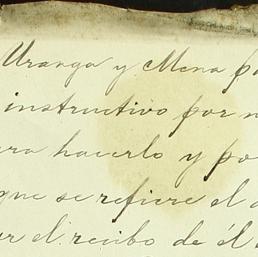 Uranga y Mena p
instructivo por n
ara hacerlo y po
que se refiere el a
or el recibo de él